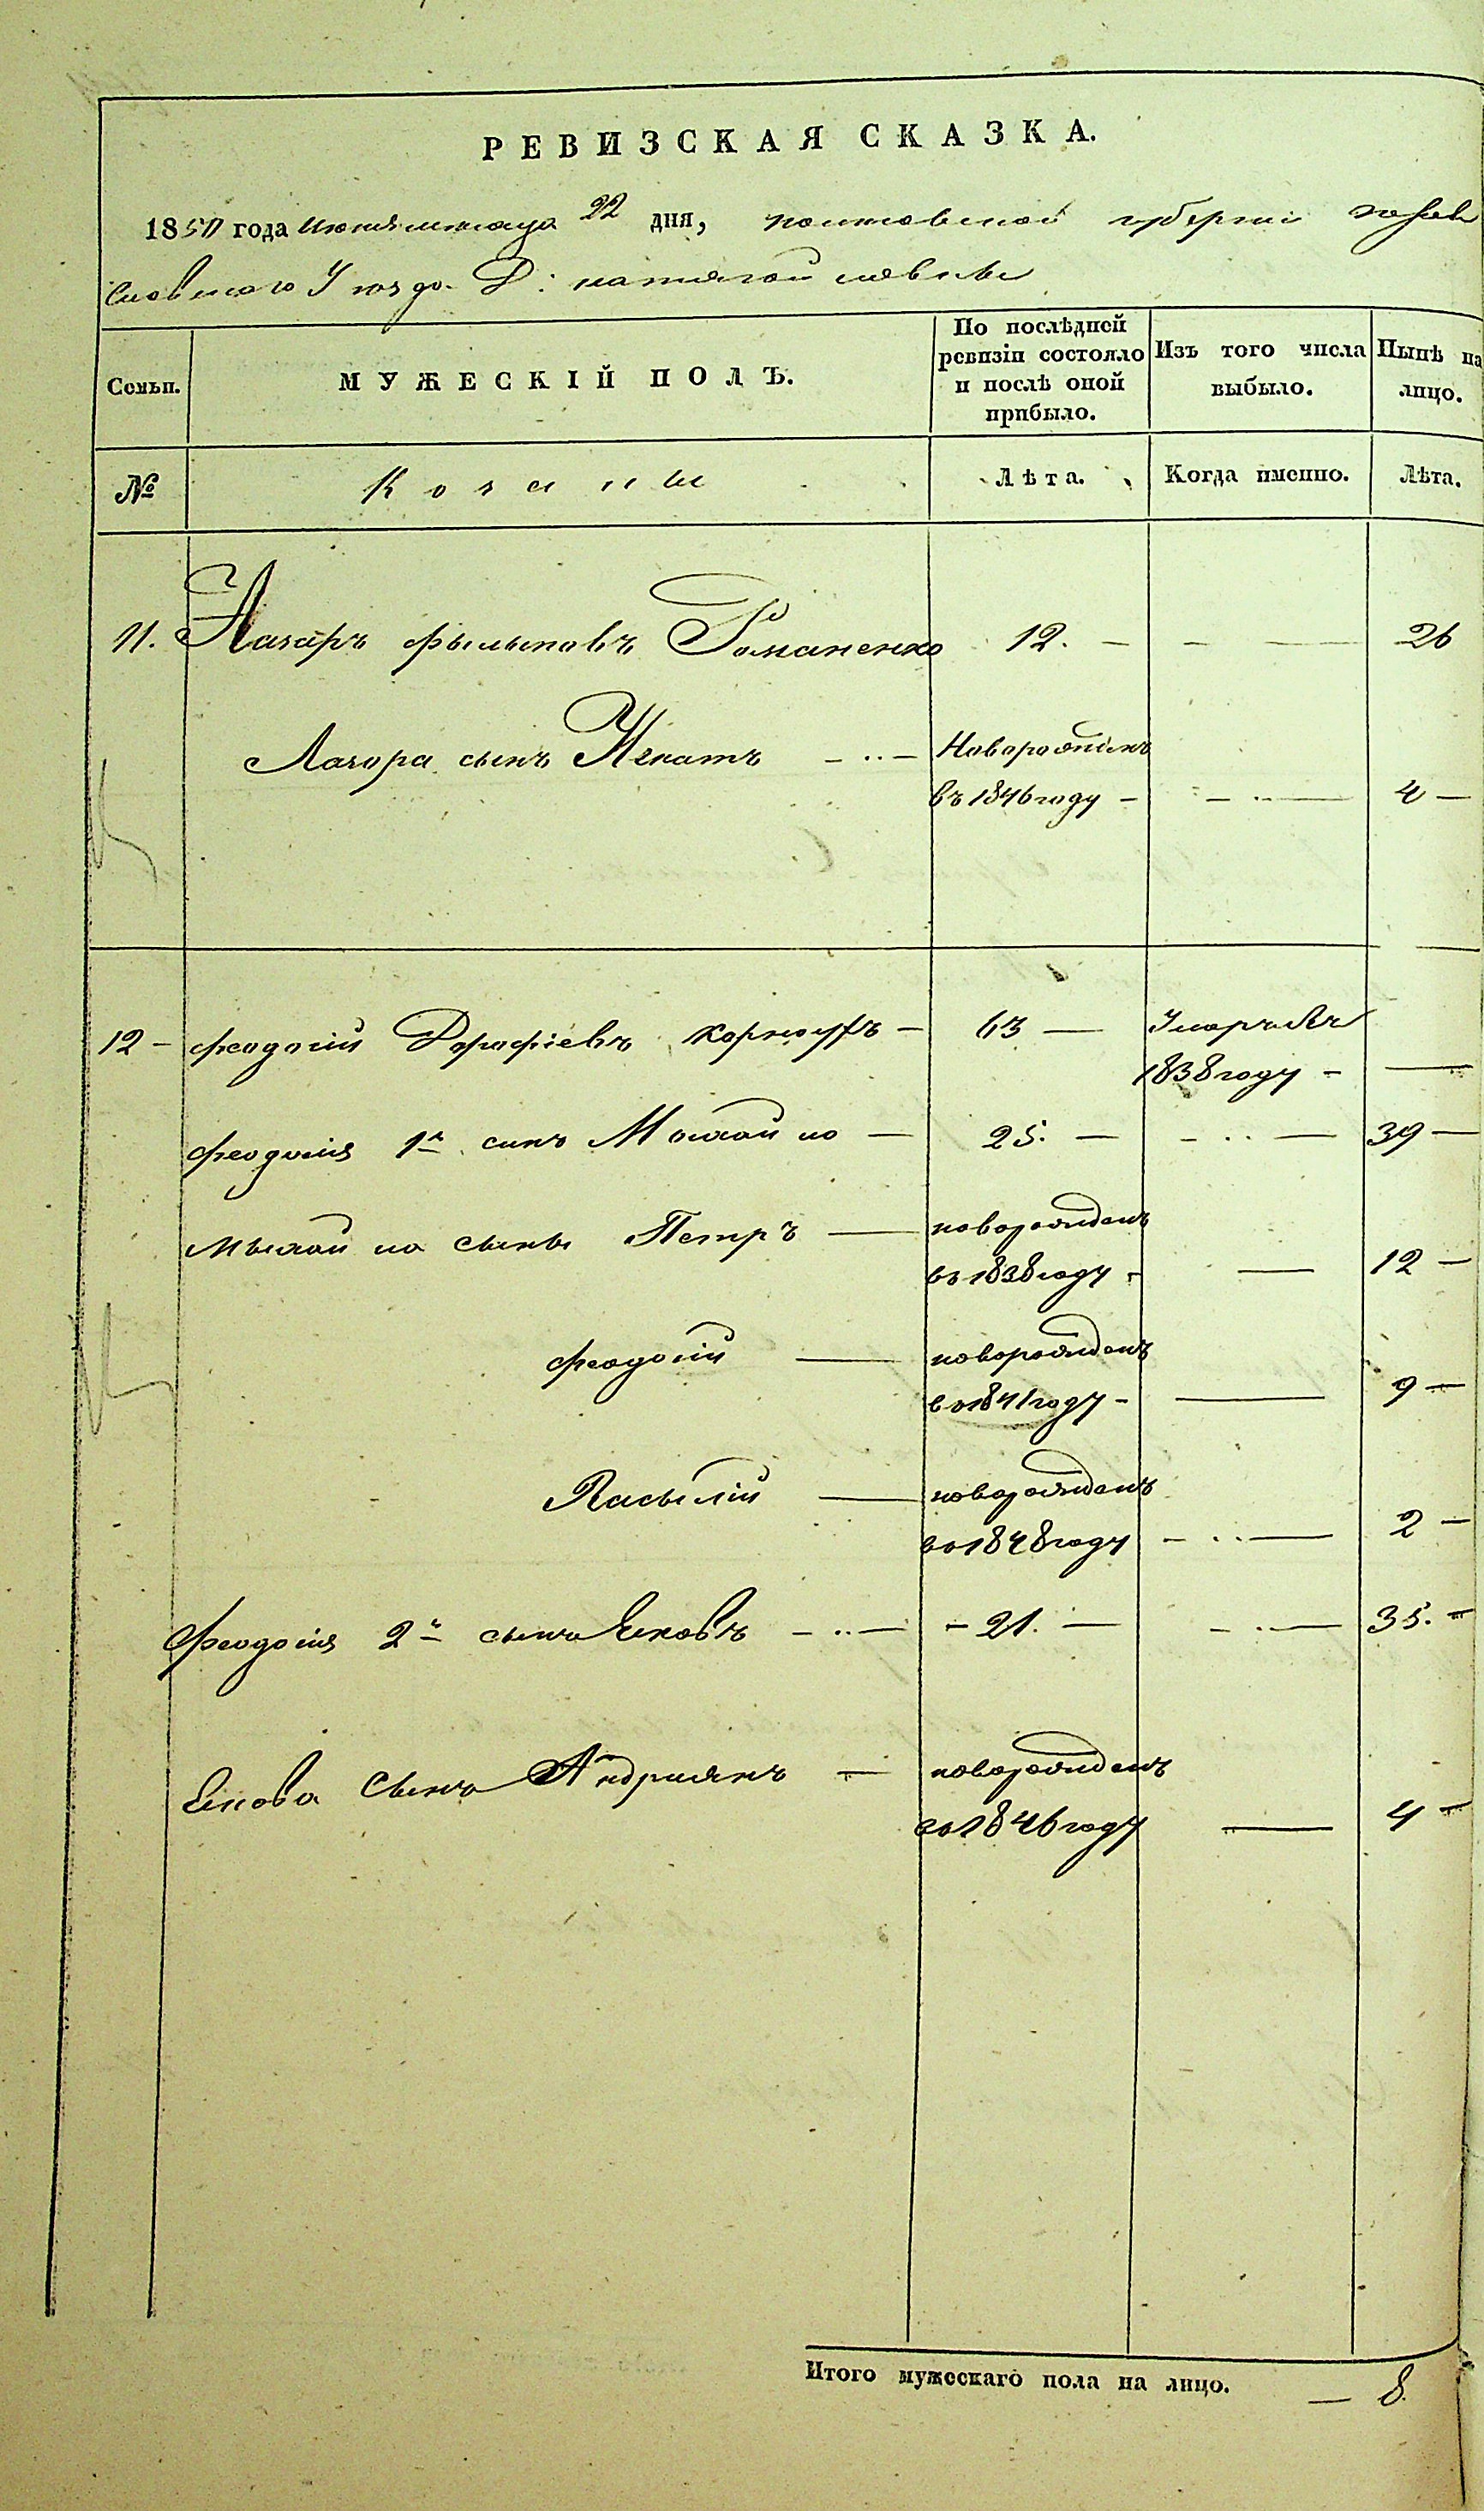 РЕВИЗСКАЯ СКАЗКА.
1850 года июня месяца 22 дня, полтавской губернии переяс
лавского Уезда Д:
Семьи. МУЖЕСКІЙ ПОЛЪ. По послѣдней ревизіи состояло и послѣ оной прибыло. Изъ того числа выбыло. Нынѣ на лицо.
№ Козаки Лѣта. Когда именно. Лѣта.
11. Лазаръ Филиповъ Романенко 12. 26
Лазора сынъ Игнатъ Новорожденъ
въ 1846 году 4
12 Феодосій Дорофіевъ 63 Умеръ въ
1838 году
Феодосія 1й сынъ Михайло 25. 39
Михайла сыны Петръ новорожденъ
во 1838 году 12
Феодосій новорожденъ
во 1841 году 9
Василій новорожденъ
во 1848 году 2
Феодосія 2й сынъ Яковъ 21. 35.
Якова Сынъ Андриянъ новорожденъ
во 1846 году 4
Итого мужескаго пола на лицо. 8.